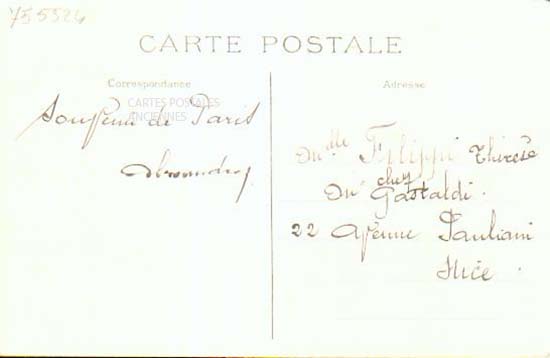 755526
CARTE POSTALE
Correspondance
Adresse
CARTES POSTALES
ANCIENNES
Souvenir de Paris
Mlle Filippi Thérèse
chez
Mr Gastaldi.
22 Avenue Pauliani
Nice.